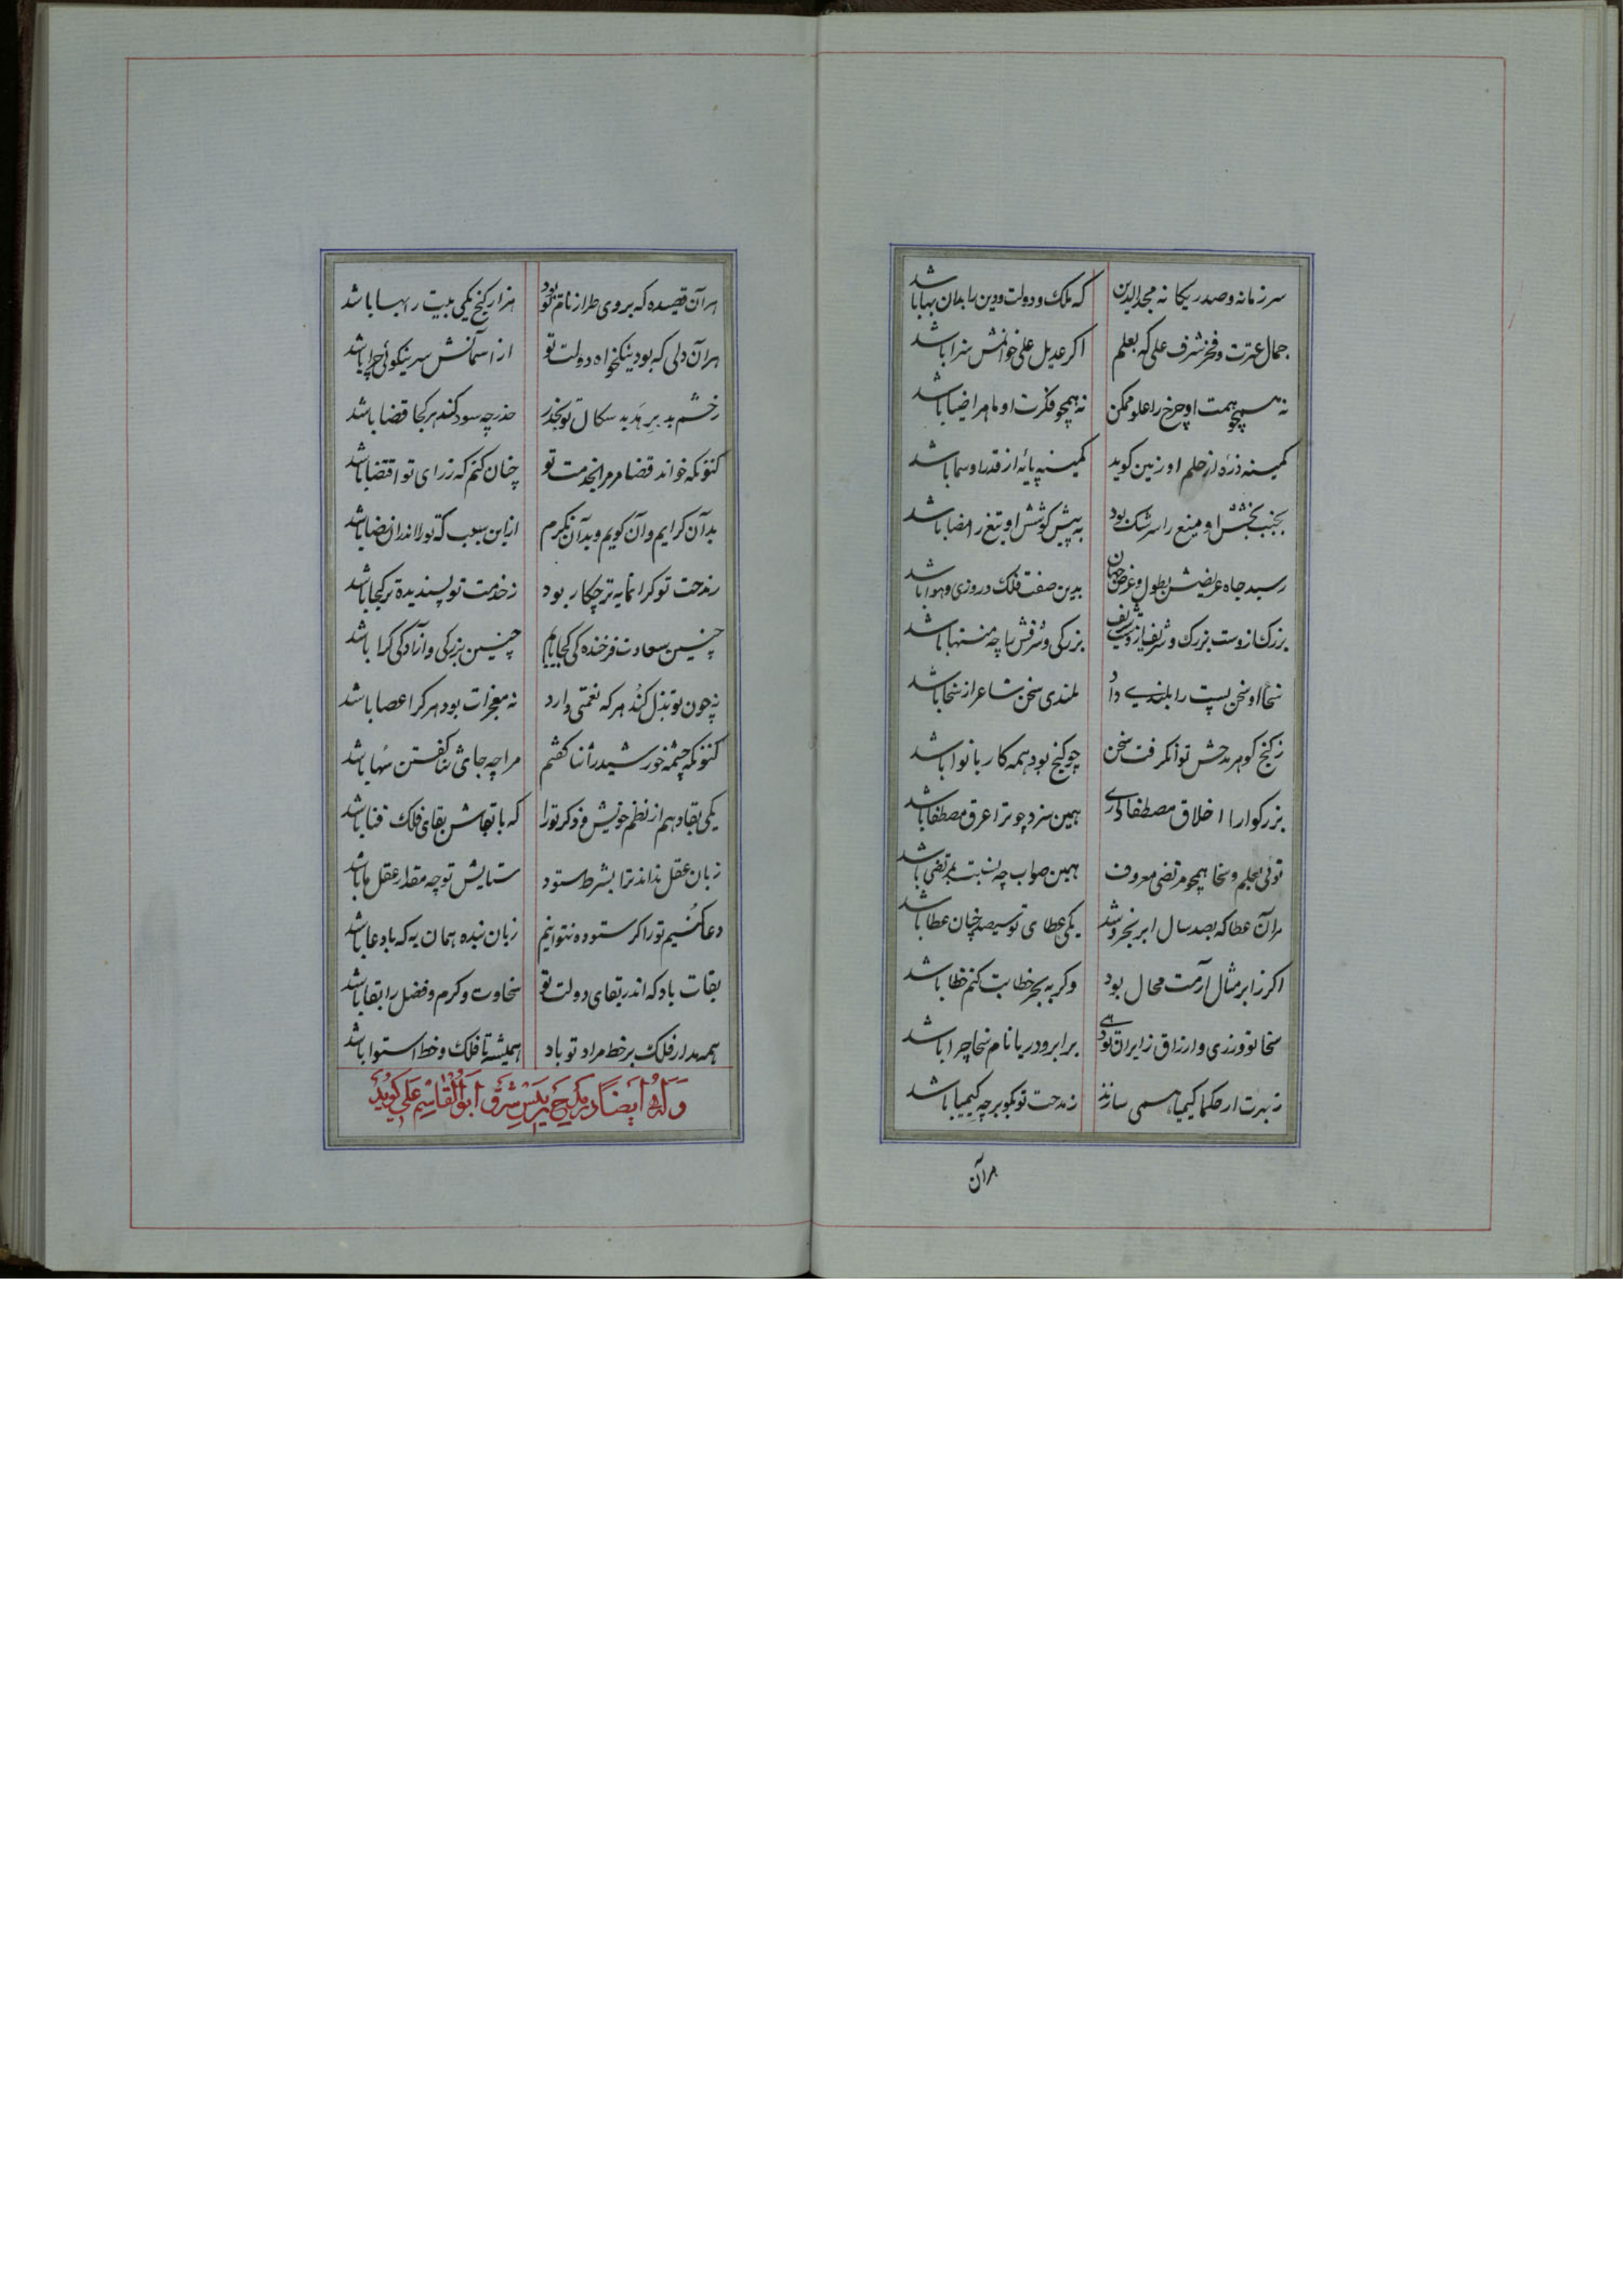 سر زمانه و صدر یکانه مجدالدین که ملک و دولت و دین را بدان بها باشد
جمال عترت و فخر شرف علی که بعلم اکر عدیل علی خوانمش سزا باشد
نه همچو همت او چرخ را علو ممکن نه همچو فکرت او ماه را ضیا باشد
کمینه ذرهٔ از حلم او زمین کوید کمینه پایهٔ از قدر او سما باشد
بجنب بخشش او میغ را سرشک بود به پیش کوشش او تیغ را مضا باشد
رسید جاه عریضش بطول و عرض جهان بدین صفت فلک و روزی و هوا باشد
بزرک ازوست بزرک و شریف ازوست شریف بزرکی و شرفش تا چه منتها باشد
سخا او سخن پست را بلندی داد بلندی سخن شاعر از سخا باشد
ز کنج کوهر مدحش توانکر فت سخن چو کنج بود همه کار با نوا باشد
بزرکوارا اخلاق مصطفا داری همین سزد چو ترا عرق مصطفا باشد
توئی بعلم و سخا همچو مرتضی معروف همین صواب چه نسبت بمرتضی باشد
هر آن عطا که بصد سال ابر بخروشد یکی عطای تو سیصد چنان عطا باشد
اکر ز ابر مثال آرمت محال بود وکر به بحر خطابت کنم خطا باشد
سخا تو ورزی و ارزاق زایران تو دهی بر ابر و دریا نام سخا چرا باشد
ز تربت ار حکما کیمیا همی سازند ز مدحت تو نکوتر چه کیمیا باشد
هر آن
هر آن قصیده که بر وی طراز نام تو بود هزار کنج یکی بیت ر بها باشد
هر آن دلی که بود نیکخواه دولت تو از آسمانش سر نیکوئی جزا باشد
ز خشم بد بر هد بد سکال تو بحذر حذر چه سود کند هر کجا قضا باشد
کنونکه خواند قضا مر مرا بخدمت تو چنان کنم که ز رای تو اقتضا باشد
بدآن کرایم و آن کویم و بدآن نکرم از این سبب که تو را اندر ان رضا باشد
ز مدحت تو کرانمایه تر چکار بود ز خدمت تو پسندیده تر کجا باشد
چنین سعادت فرخنده کی کجا یابم چنین بزرکی و آزادکی کرا باشد
نه چون تو بذل کند هر که نعمتی دارد نه معجزات بود هر کرا عصا باشد
کنونکه چشمه خورشید را ثنا کفتم مرا چه جای ثنا کفتن سها باشد
یکی بقا دهم از نظم خویش ذکر تو را که با بقاش بقای فلک فنا باشد
زبان عقل نداند ترا بشرط ستود ستایش تو چه مقدار عقل ما باشد
دعا کنیم تو را کر ستوده نتوانیم زبان بنده همان به که با دعا باشد
بقات باد که اندر بقای دولت تو سخاوت و کرم و فضل را بقا باشد
همه مدار فلک بر خط مراد تو باد همیشه تا فلک و خط استوا باشد
وله ایضا در مدیح رئیس شرق ابوالقاسم علی کوید